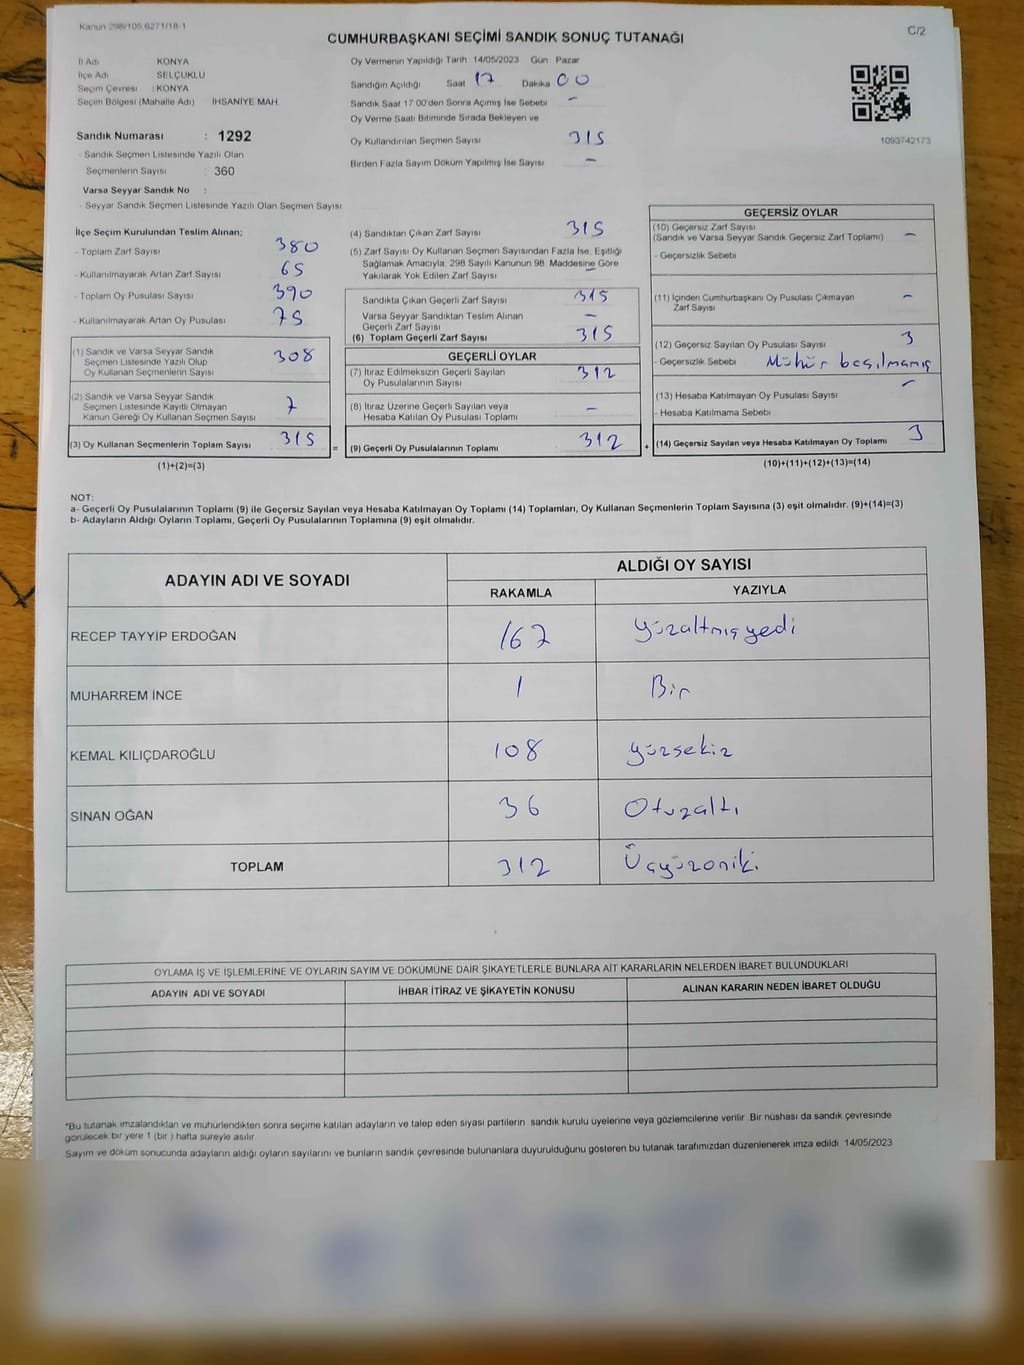 Kanun 298/105,6271/18-1
CUMHURBAŞKANI SEÇİMİ SANDIK SONUÇ TUTANAĞI
C/2
İl Adı KONYA
İlçe Adı SELÇUKLU
Seçim Çevresi : KONYA
Seçim Bölgesi (Mahalle Adı) İHSANİYE MAH.
Sandık Numarası : 1292
- Sandık Seçmen Listesinde Yazılı Olan
Seçmenlerin Sayısı : 360
Varsa Seyyar Sandık No :
- Seyyar Sandık Seçmen Listesinde Yazılı Olan Seçmen Sayısı
Oy Vermenin Yapıldığı Tarih 14/05/2023 Gün Pazar
Sandığın Açıldığı Saat 17 Dakika 00
Sandık Saat 17.00'den Sonra Açılmış İse Sebebi -
Oy Verme Saati Bitiminde Sırada Bekleyen ve
Oy Kullandırılan Seçmen Sayısı 315
Birden Fazla Sayım Döküm Yapılmış İse Sayısı -
1093742173
İlçe Seçim Kurulundan Teslim Alınan;
- Toplam Zarf Sayısı 380
- Kullanılmayarak Artan Zarf Sayısı 65
- Toplam Oy Pusulası Sayısı 390
- Kullanılmayarak Artan Oy Pusulası 75
(1) Sandık ve Varsa Seyyar Sandık
Seçmen Listesinde Yazılı Olup
Oy Kullanan Seçmenlerin Sayısı 308
(2) Sandık ve Varsa Seyyar Sandık
Seçmen Listesinde Kayıtlı Olmayan
Kanun Gereği Oy Kullanan Seçmen Sayısı 7
(3) Oy Kullanan Seçmenlerin Toplam Sayısı 315 =
(1)+(2)=(3)
(4) Sandıktan Çıkan Zarf Sayısı 315
(5) Zarf Sayısı Oy Kullanan Seçmen Sayısından Fazla İse, Eşitliği
Sağlamak Amacıyla, 298 Sayılı Kanunun 98. Maddesine Göre
Yakılarak Yok Edilen Zarf Sayısı -
Sandıkta Çıkan Geçerli Zarf Sayısı 315
Varsa Seyyar Sandıktan Teslim Alınan
Geçerli Zarf Sayısı -
(6) Toplam Geçerli Zarf Sayısı 315
GEÇERLİ OYLAR
(7) İtiraz Edilmeksizin Geçerli Sayılan
Oy Pusulalarının Sayısı 312
(8) İtiraz Üzerine Geçerli Sayılan veya
Hesaba Katılan Oy Pusulası Toplamı -
(9) Geçerli Oy Pusulalarının Toplamı 312 +
GEÇERSİZ OYLAR
(10) Geçersiz Zarf Sayısı
(Sandık ve Varsa Seyyar Sandık Geçersiz Zarf Toplamı) -
- Geçersizlik Sebebi
(11) İçinden Cumhurbaşkanı Oy Pusulası Çıkmayan
Zarf Sayısı -
(12) Geçersiz Sayılan Oy Pusulası Sayısı 3
- Geçersizlik Sebebi Mühür basılmamış
(13) Hesaba Katılmayan Oy Pusulası Sayısı -
- Hesaba Katılmama Sebebi
(14) Geçersiz Sayılan veya Hesaba Katılmayan Oy Toplamı 3
(10)+(11)+(12)+(13)=(14)
NOT:
a- Geçerli Oy Pusulalarının Toplamı (9) ile Geçersiz Sayılan veya Hesaba Katılmayan Oy Toplamı (14) Toplamları, Oy Kullanan Seçmenlerin Toplam Sayısına (3) eşit olmalıdır. (9)+(14)=(3)
b- Adayların Aldığı Oyların Toplamı, Geçerli Oy Pusulalarının Toplamına (9) eşit olmalıdır.
ADAYIN ADI VE SOYADI
ALDIĞI OY SAYISI
RAKAMLA YAZIYLA
RECEP TAYYİP ERDOĞAN 167 Yüzaltmışyedi
MUHARREM İNCE 1 Bir
KEMAL KILIÇDAROĞLU 108 yüzsekiz
SİNAN OĞAN 36 Otuzaltı
TOPLAM 312 Üçyüzoniki
OYLAMA İŞ VE İŞLEMLERİNE VE OYLARIN SAYIM VE DÖKÜMÜNE DAİR ŞİKAYETLERLE BUNLARA AİT KARARLARIN NELERDEN İBARET BULUNDUKLARI
ADAYIN ADI VE SOYADI İHBAR İTİRAZ VE ŞİKAYETİN KONUSU ALINAN KARARIN NEDEN İBARET OLDUĞU
*Bu tutanak imzalandıktan ve mühürlendikten sonra seçime katılan adayların ve talep eden siyasi partilerin sandık kurulu üyelerine veya gözlemcilerine verilir. Bir nüshası da sandık çevresinde
görülecek bir yere 1 (bir) hafta süreyle asılır.
Sayım ve döküm sonucunda adayların aldığı oyların sayılarını ve bunların sandık çevresinde bulunanlara duyurulduğunu gösteren bu tutanak tarafımızdan düzenlenerek imza edildi. 14/05/2023